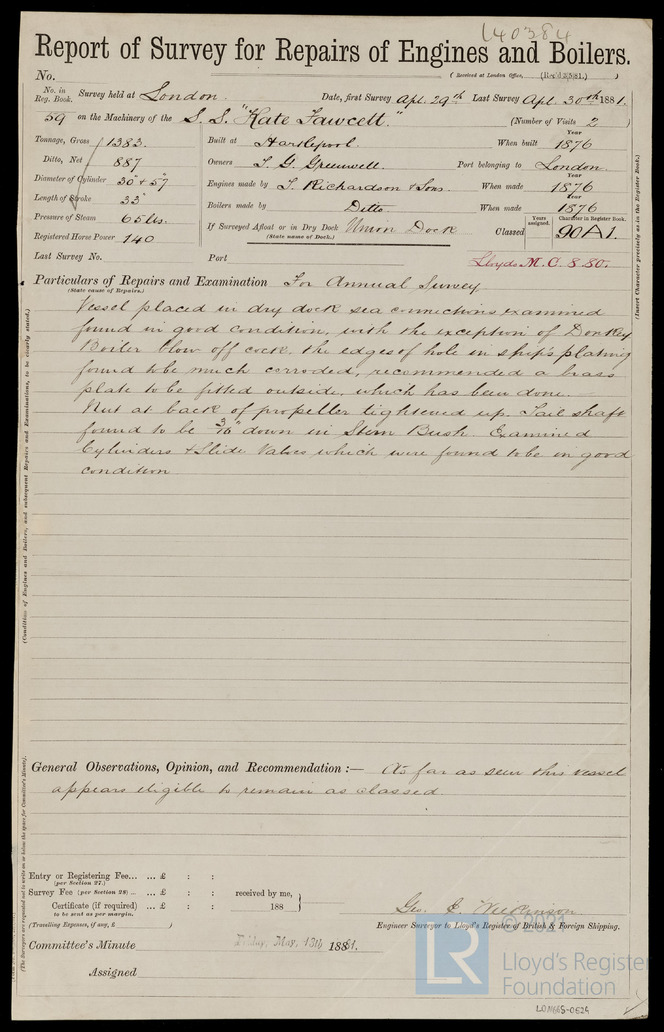 L40384
Report of Survey for Repairs of Engines and Boilers.
No. (Received at London Office, )
No. in Reg. Book. Survey held at London. Date, first Survey Apl. 29th Last Survey Apl. 30th 1881.
59 on the Machinery of the S. S. "Kate Fawcett." (Number of Visits 2 )
Tonnage, Gross 1383.
Ditto, Net 887
Diameter of Cylinder 30" + 57"
Length of Stroke 33"
Pressure of Steam 65 lbs.
Registered Horse Power 140
Built at Hartlepool. When built Year 1876
Owners T. G. Greenwell. Port belonging to London.
Engines made by T. Richardson & Sons. When made Year 1876
Boilers made by Ditto. When made Year 1876
If Surveyed Afloat or in Dry Dock Union Dock
(State name of Dock.)
Classed Years assigned. Character in Register Book. 90A1.
(Insert Character precisely as in the Register Book.)
Last Survey No. Port Lloyds M. C. 8. 80.
Particulars of Repairs and Examination For Annual Survey
(State cause of Repairs.)
Vessel placed in dry dock sea connections examined
found in good condition, with the exception of Donkey
Boiler blow off cock, the edges of hole in ship's plating
found to be much corroded, recommended a brass
plate to be fitted outside, which has been done.
Nut at back of propeller tightened up. Tail shaft
found to be 3/16" down in Stern Bush. Examined
Cylinders & Slide Valves which were found to be in good
condition
(Condition of Engines and Boilers, and subsequent Repairs and Examinations, to be clearly stated.)
General Observations, Opinion, and Recommendation :— As far as seen this vessel
appears eligible to remain as classed.
(The Surveyors are requested not to write on or below the space for Committee's Minute).
Entry or Registering Fee... ... £ : :
(per Section 27.)
Survey Fee (per Section 28) ... ... £ : : received by me,
Certificate (if required) ... £ : : 188
to be sent as per margin.
(Travelling Expenses, if any, £ )
Geo. E. Wilkinson
Engineer Surveyor to Lloyd's Register of British & Foreign Shipping.
Committee's Minute Friday, May, 13th 1881.
Assigned
© 2021
LR
Lloyd's Register
Foundation